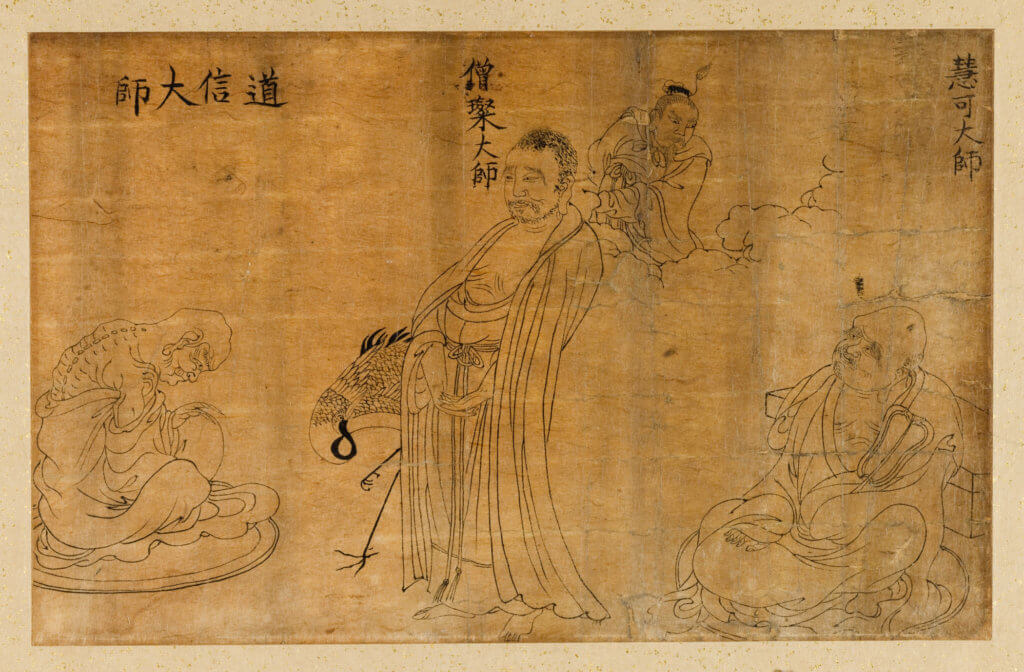 慧可大師
僧璨大師
道信大師